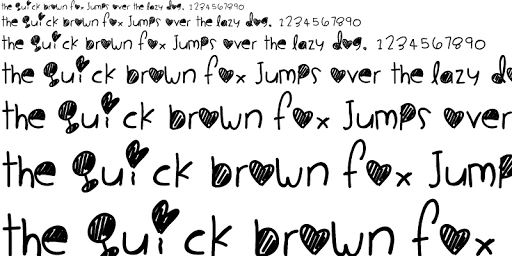 the quick brown fox Jumps over the lazy dog. 1234567890
the quick brown fox Jumps over the lazy dog. 1234567890
the quick brown fox Jumps over the lazy dog. 1234567890
the quick brown fox Jumps over the lazy do
the quick brown fox Jumps over
the quick brown fox Jump
the quick brown fox